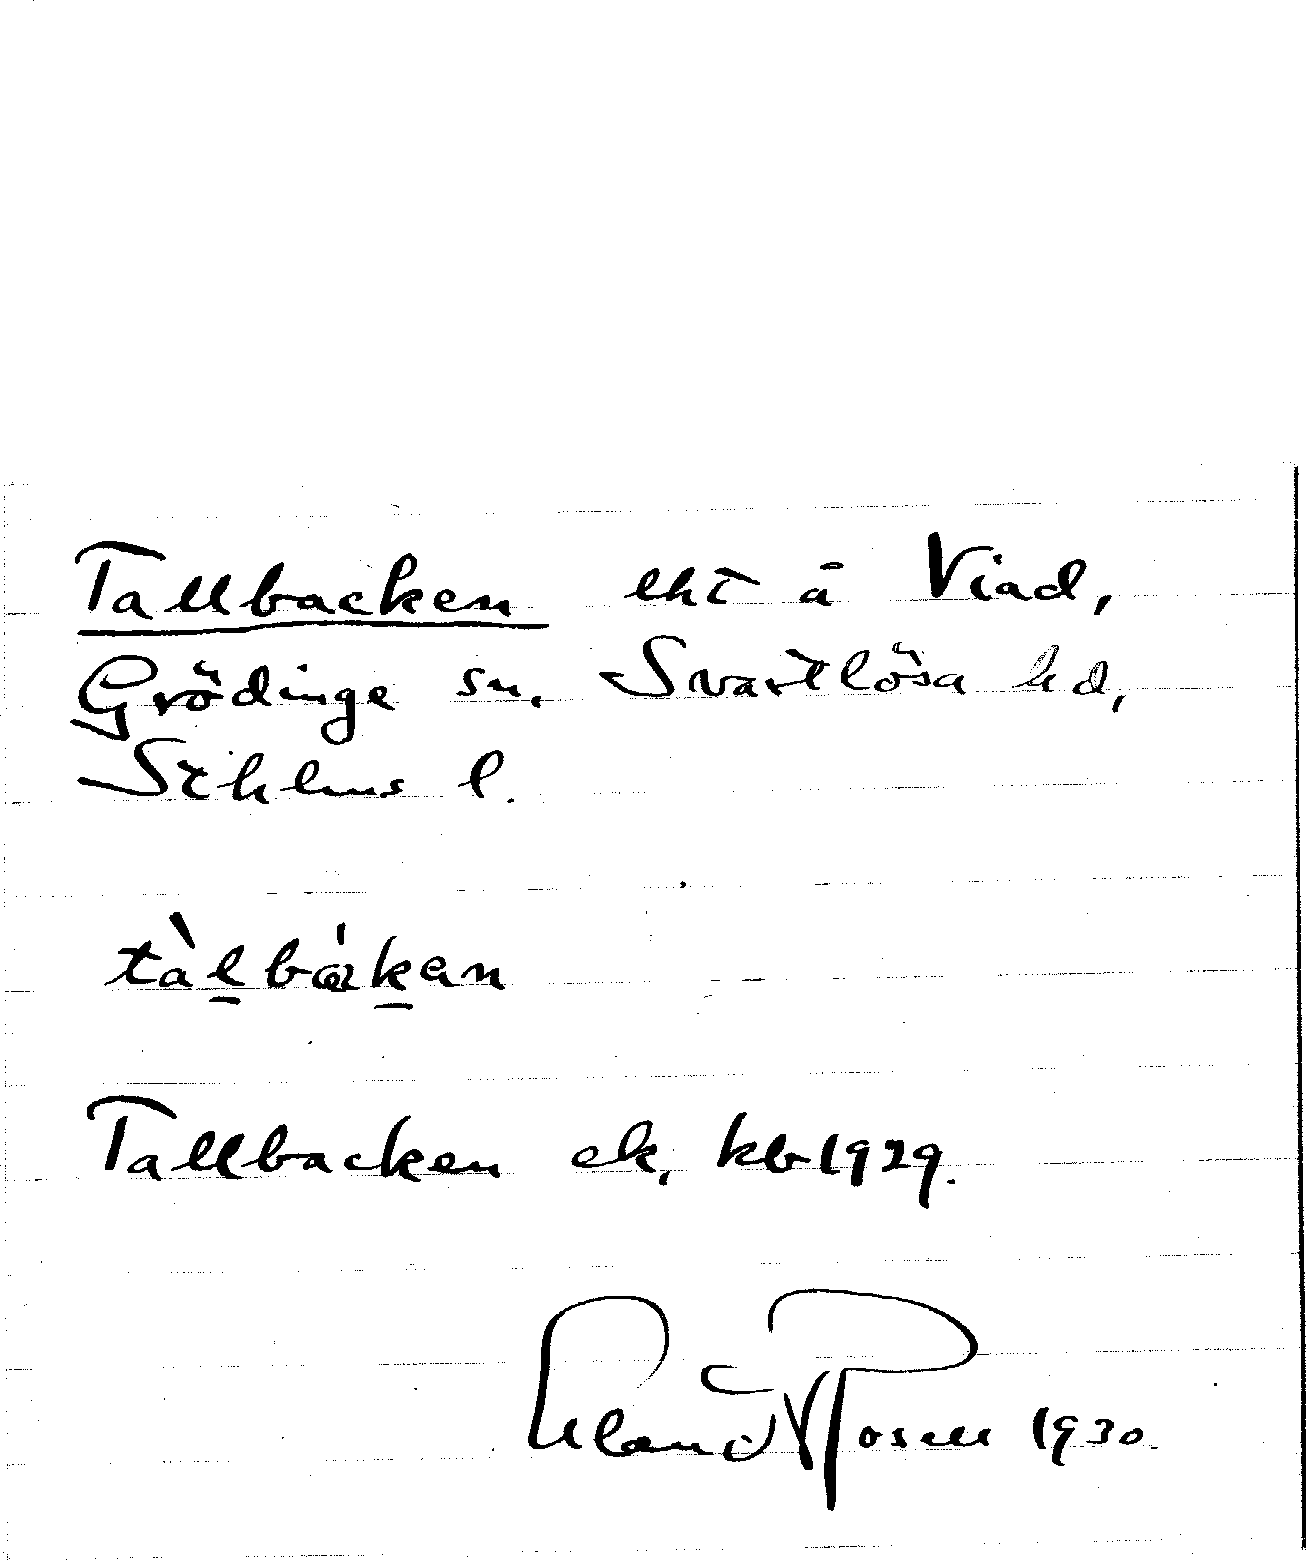 Tallbacken lht å Viad,
Grödinge sn. Svartlösa hd,
Sthlms l.
tàl̠bák̠en
Tallbacken ek. kb 1929.
Erland Rosell 1930.